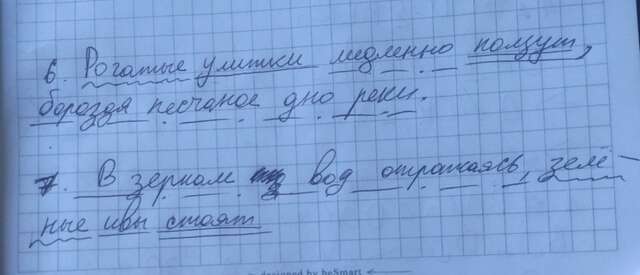 6. Рогатые улитки медленно ползут,
бороздя песчаное дно реки.
7. В зеркале вод отражаясь, зелё-
ные ивы стоят
designed by beSmart